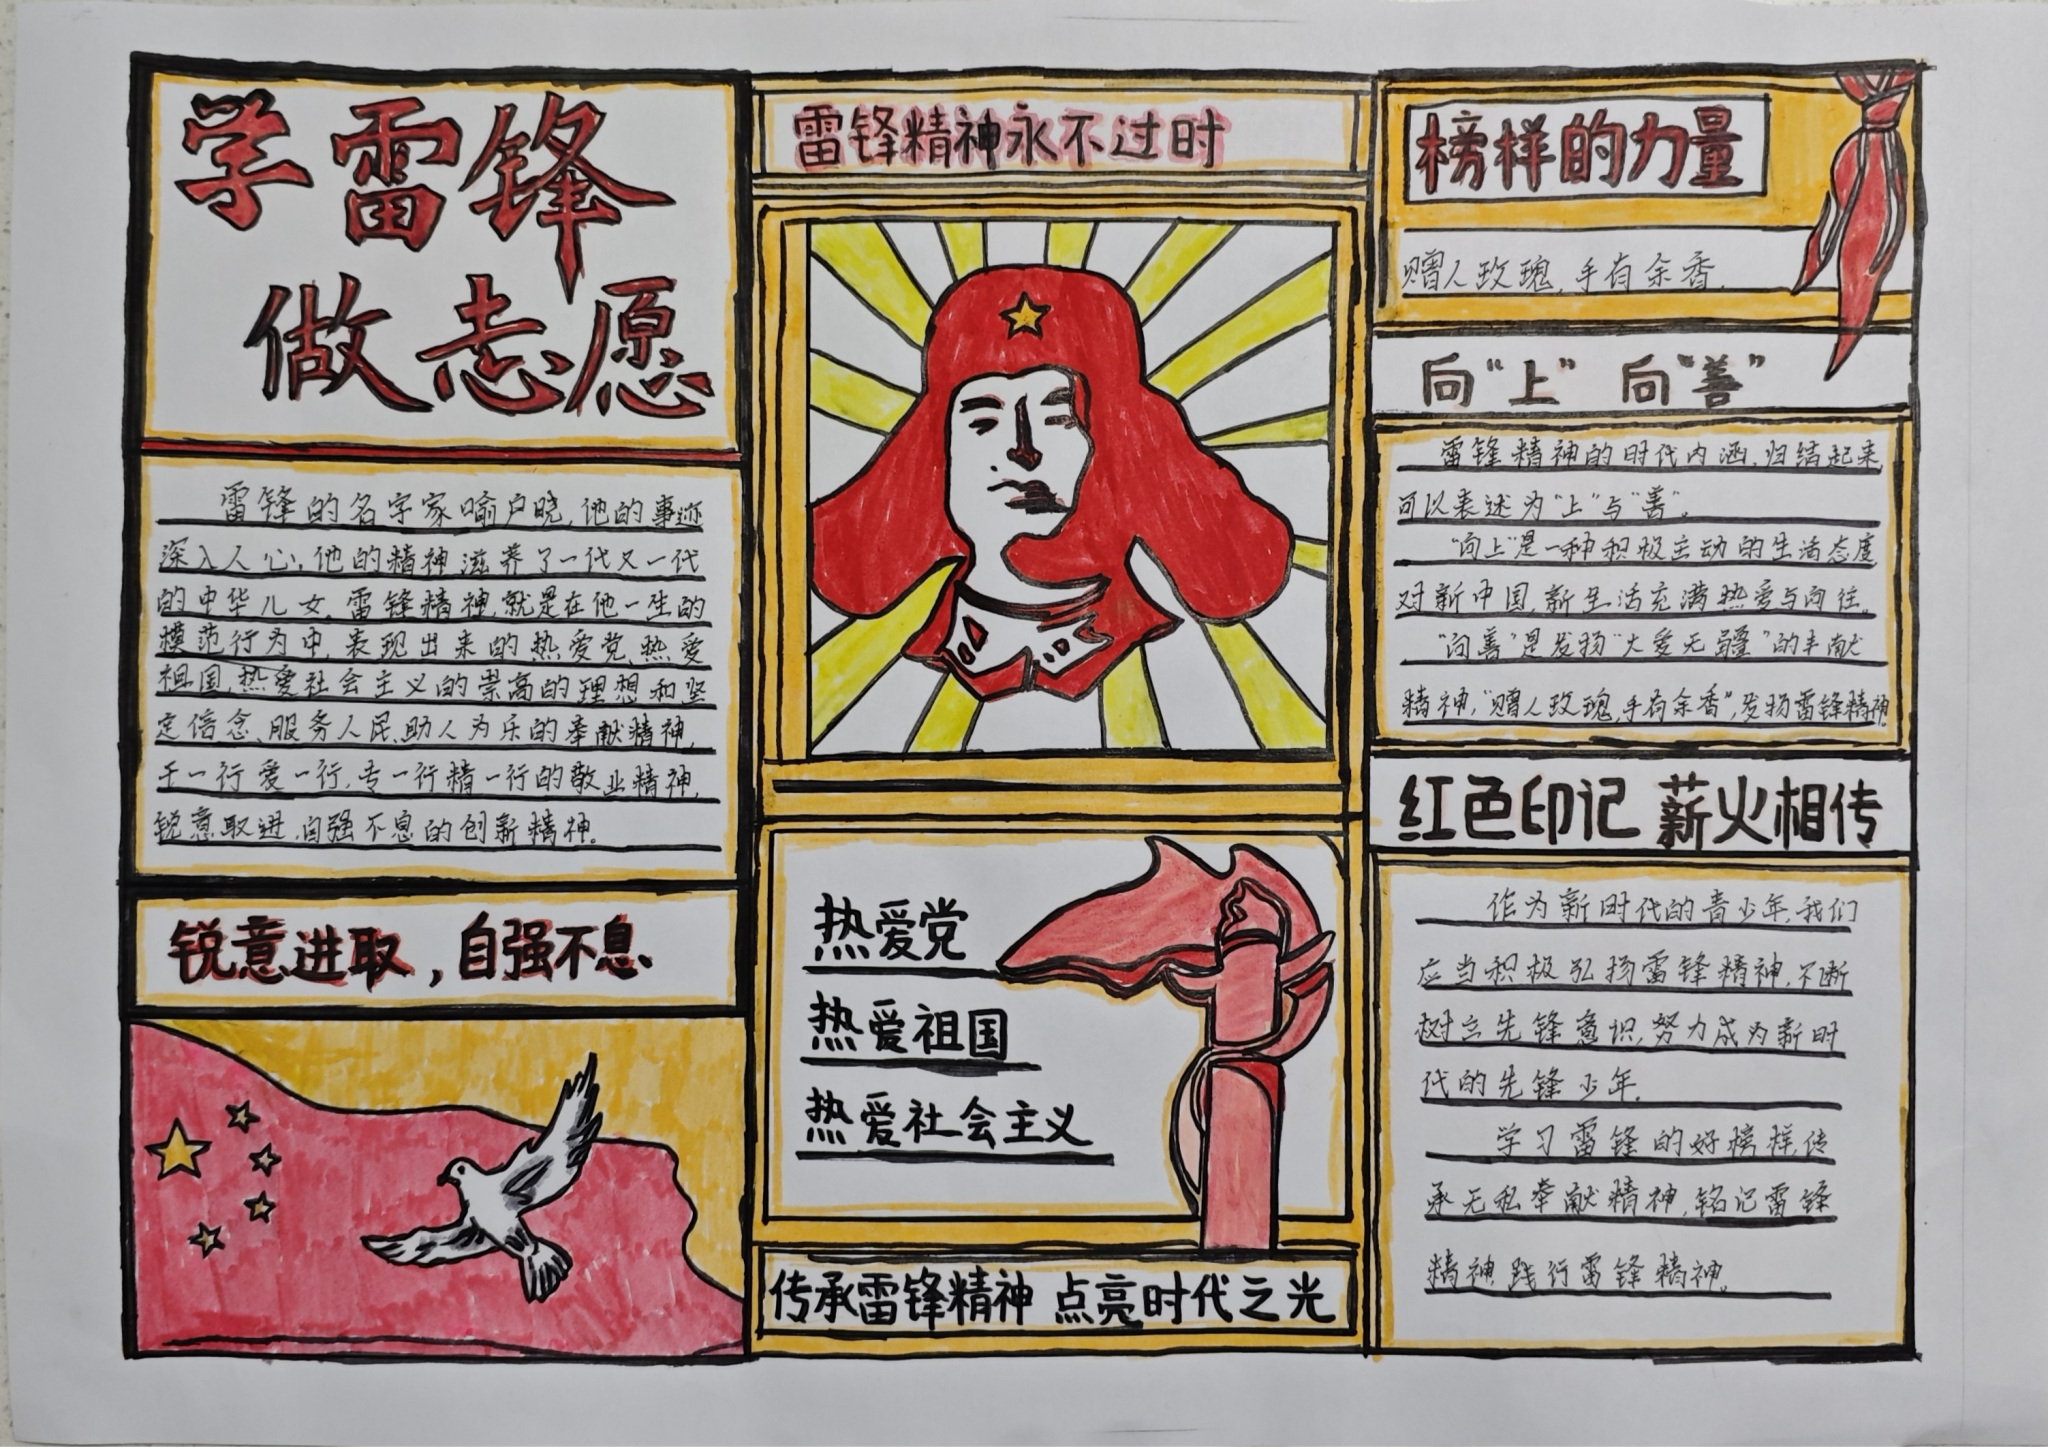 学雷锋
做志愿
雷锋的名字家喻户晓,他的事迹
深入人心,他的精神滋养了一代又一代
的中华儿女。雷锋精神,就是在他一生的
模范行为中,表现出来的热爱党、热爱
祖国,热爱社会主义的崇高的理想和坚
定信念、服务人民、助人为乐的奉献精神,
干一行爱一行,专一行精一行的敬业精神,
锐意取进,自强不息的创新精神。
锐意进取,自强不息
雷锋精神永不过时
热爱党
热爱祖国
热爱社会主义
传承雷锋精神 点亮时代之光
榜样的力量
赠人玫瑰,手有余香.
向“上” 向“善”
雷锋精神的时代内涵,归结起来
可以表述为“上”与“善”。
“向上”是一种积极主动的生活态度
对新中国,新生活充满热爱与向往。
“向善”是发扬“大爱无疆”的丰献
精神,“赠人玫瑰,手有余香”,发扬雷锋精神。
红色印记 薪火相传
作为新时代的青少年,我们
应当积极弘扬雷锋精神,不断
树立先锋意识,努力成为新时
代的先锋少年.
学习雷锋的好榜样,传
承无私奉献精神,铭记雷锋
精神,践行雷锋精神。